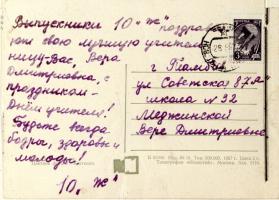 Выпускники 10 "Ж" поздрав
ют свою лучшую учитель
ницу-Вас, Вера
Дмитриевна, с
праздником-
Днём учителя!
Будьте всегда
бодры, здоровы и
молоды!
10 "Ж"
г Тамбов
ул Советская 87а
школа N 32
Меджинской
Вере Дмитриевне